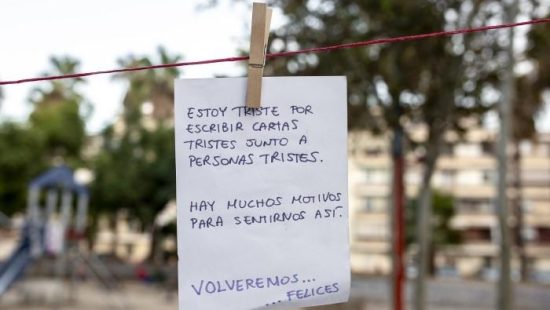 ESTOY TRISTE POR
ESCRIBIR CARTAS
TRISTES JUNTO A
PERSONAS TRISTES.
HAY MUCHOS MOTIVOS
PARA SENTIRNOS ASÍ.
VOLVEREMOS...
... FELICES